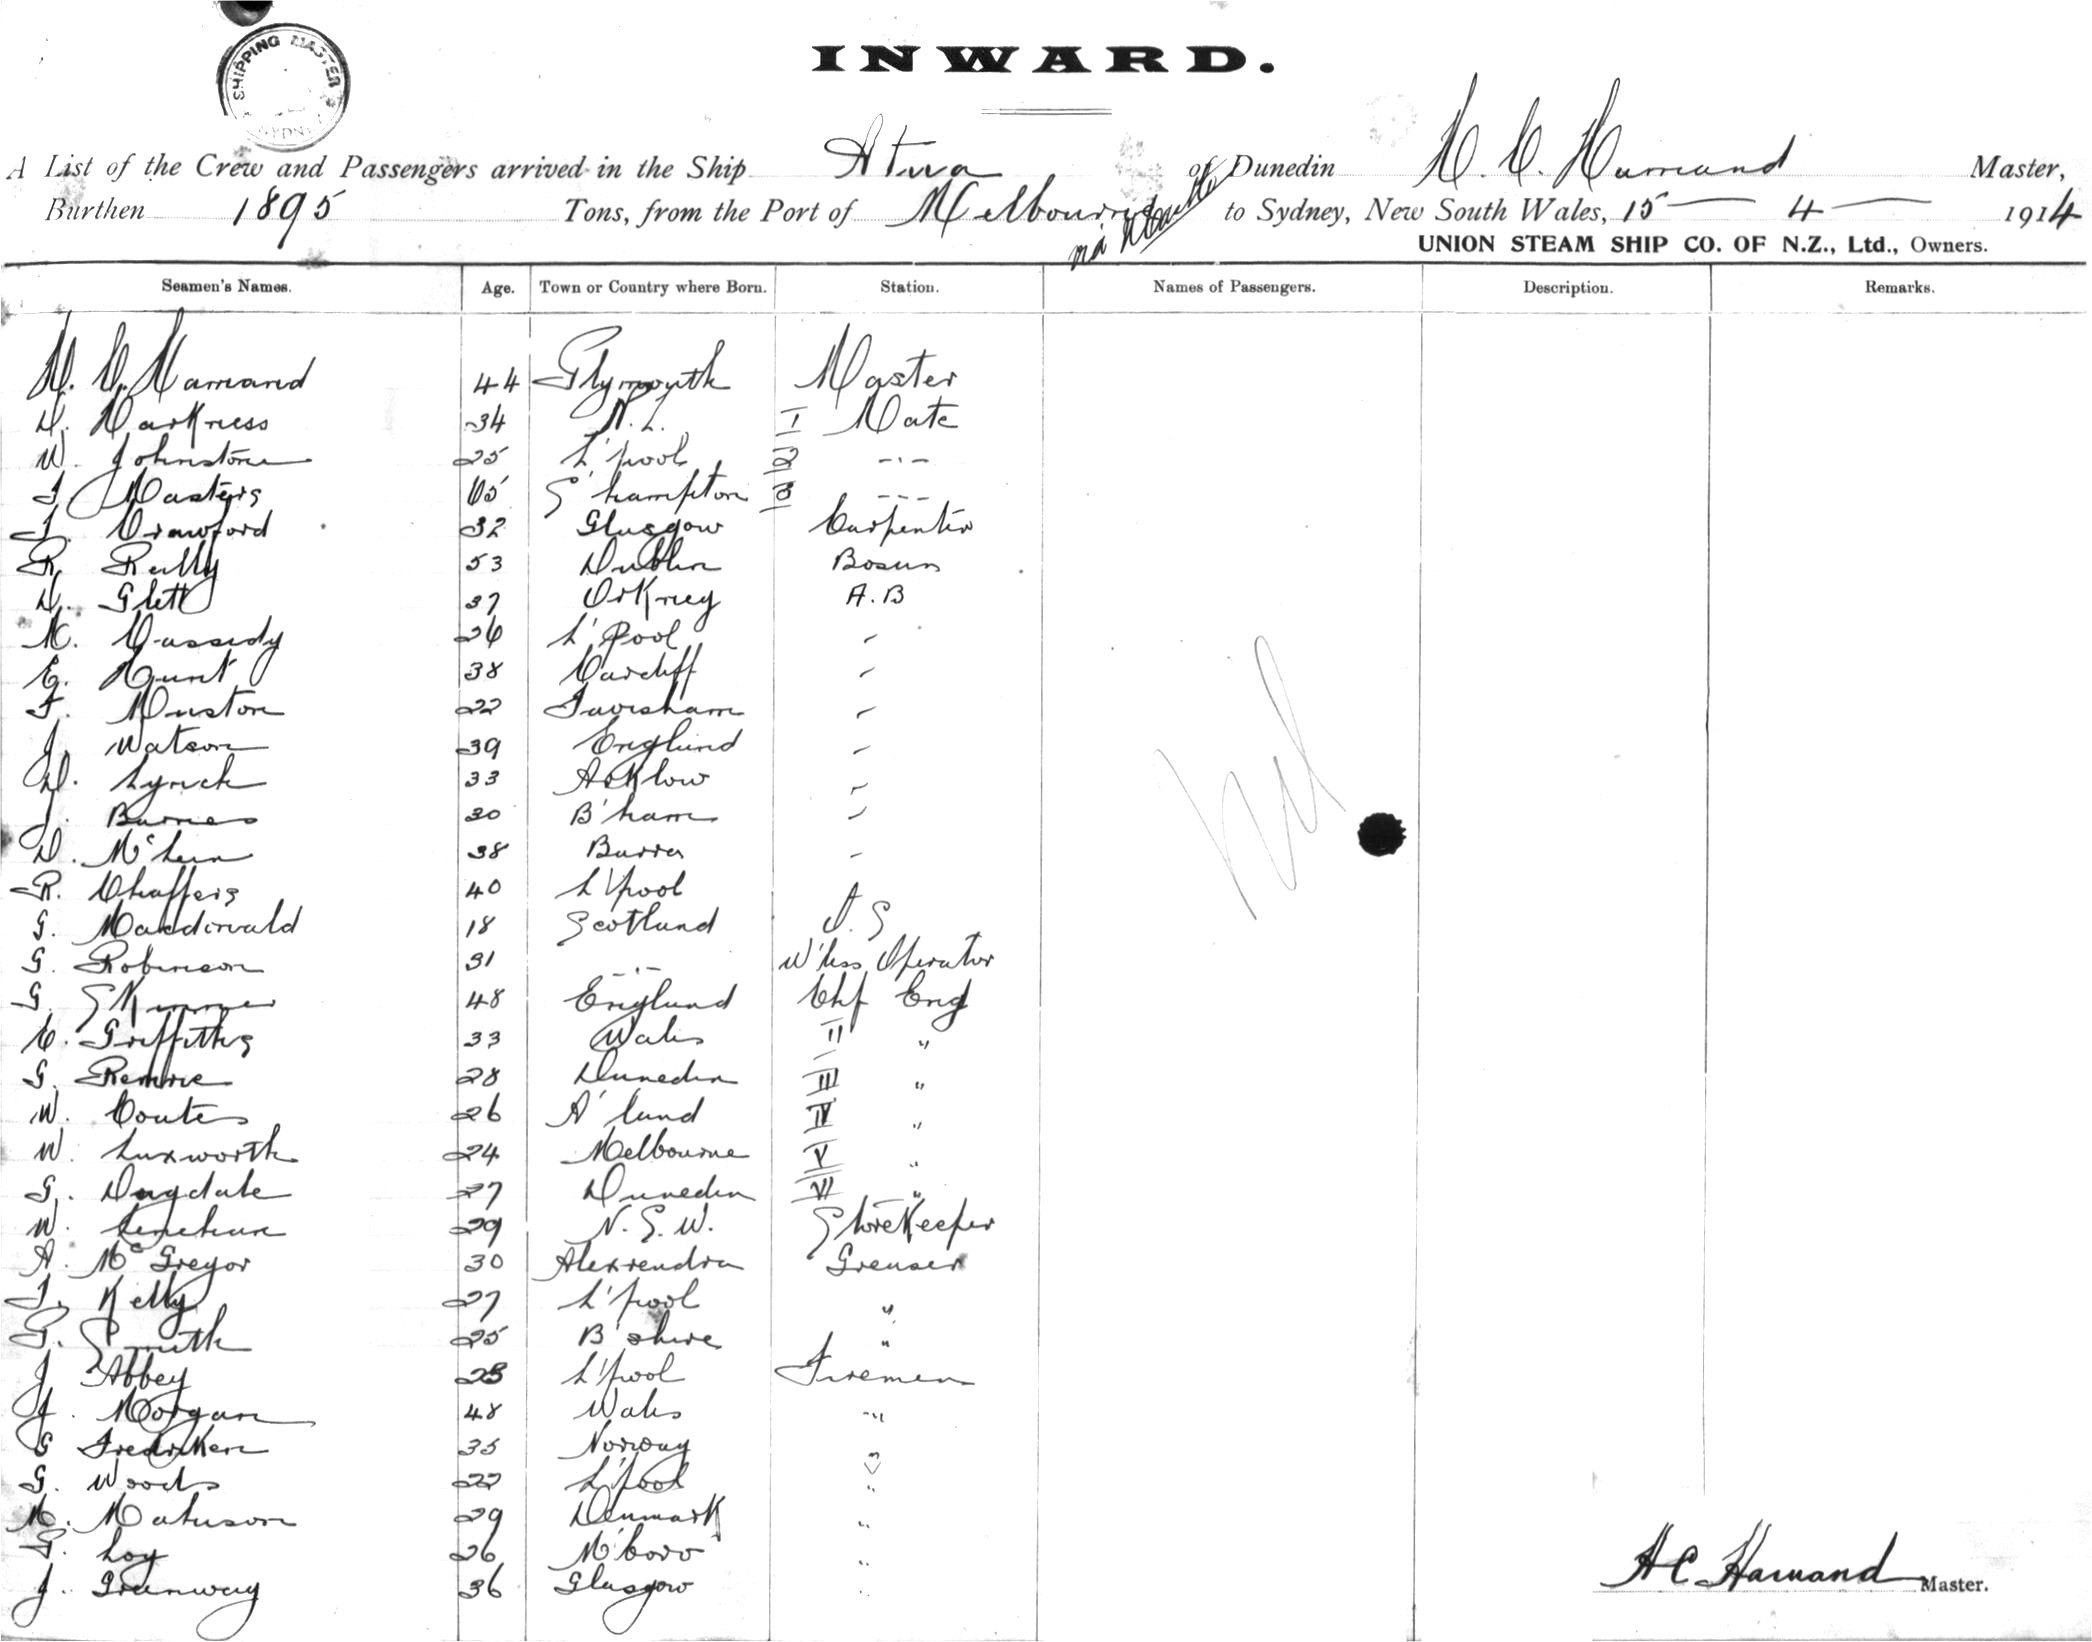 SHIPPING MASTER
SYDNEY
INWARD.
A List of the Crew and Passengers arrived in the Ship Atua of Dunedin H. C. Harrand Master,
Burthen 1895 Tons, from the Port of Melbourne via to Sydney, New South Wales, 15 — 4 — 1914
UNION STEAM SHIP CO. OF N.Z., Ltd., Owners.
Seamen's Names. Age. Town or Country where Born. Station. Names of Passengers. Description. Remarks.
H. C. Harrand 44 Plymouth Master
D. Harkness 34 N.Z. I Mate
W. Johnstone 25 L'pool 2 -"-
Masters 65 S'hampton 3 ---
J. Crawford 32 Glasgow Carpenter
R. Reilly 53 Dublin Bosun
D. Glett 37 Orkney A.B
M. Cassidy 26 L'Pool "
E. Hunt 38 Cardiff "
F. Muston 22 Faversham "
J. Watson 39 England "
D. Lynch 33 Arklow "
J. Barnes 30 B'ham "
D. McLean 38 Barra "
R. Chaffers 40 L'pool
G. Macdonald 18 Scotland O.S
G. Robinson 31 -"- W'less Operator
G. Skinner 48 England Chf Eng
C. Griffiths 33 Wales II "
G. Rennie 28 Dunedin III "
W. Coutes 26 A'land IV "
W. Luxworth 24 Melbourne V "
G. Dugdale 27 Dunedin VI "
W. Lenehan 29 N.S.W. Storekeeper
A. McGregor 30 Alexrendra Greaser
T. Kelly 27 L'pool "
G. Smith 25 B'shire "
J. Abbey 23 L'pool Firemen
J. Morgan 48 Wales "
G Fredriksen 35 Norway "
G. Woods 22 L'pool "
M. Mathison 29 Denmark "
T. Loy 26 M'boro "
J. Greenway 36 Glasgow "
Nil
H C Harrand Master.